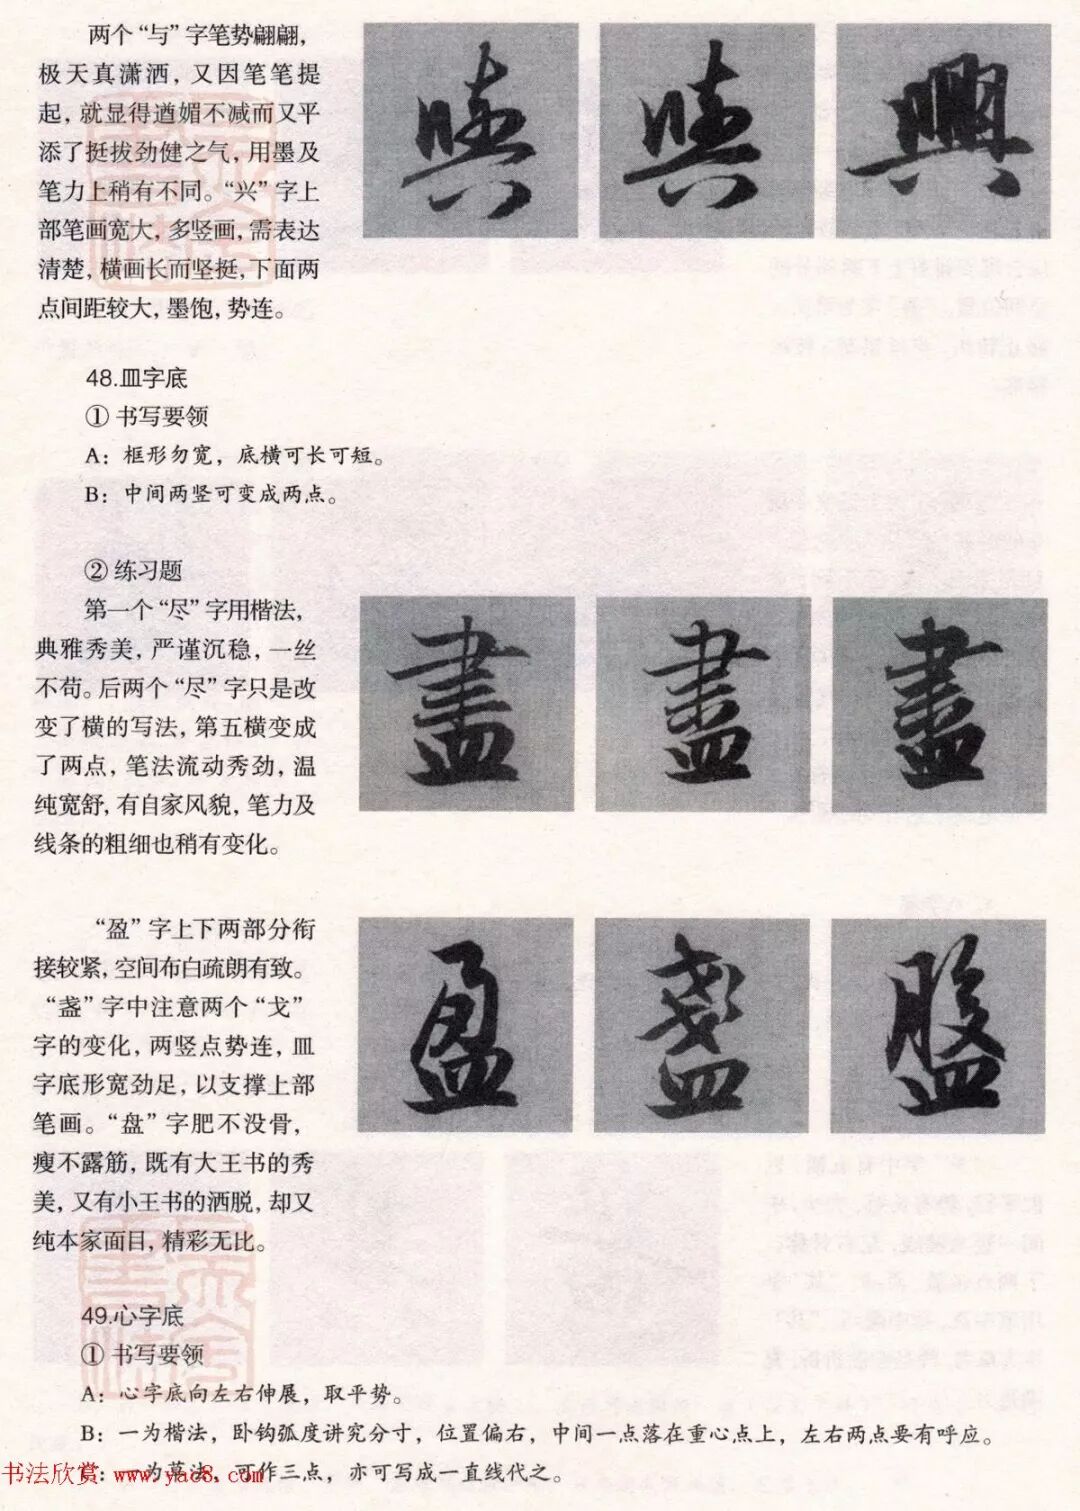 两个“与”字笔势翩翩，
极天真潇洒，又因笔笔提
起，就显得遒媚不减而又平
添了挺拔劲健之气，用墨及
笔力上稍有不同。“兴”字上
部笔画宽大，多竖画，需表达
清楚，横画长而坚挺，下面两
点间距较大，墨饱，势连。
與 與 興
48.皿字底
① 书写要领
A：框形勿宽，底横可长可短。
B：中间两竖可变成两点。
② 练习题
第一个“尽”字用楷法，
典雅秀美，严谨沉稳，一丝
不苟。后两个“尽”字只是改
变了横的写法，第五横变成
了两点，笔法流动秀劲，温
纯宽舒，有自家风貌，笔力及
线条的粗细也稍有变化。
盡 盡 盡
“盈”字上下两部分衔
接较紧，空间布白疏朗有致。
“盏”字中注意两个“戈”
字的变化，两竖点势连，皿
字底形宽劲足，以支撑上部
笔画。“盘”字肥不没骨，
瘦不露筋，既有大王书的秀
美，又有小王书的洒脱，却又
纯本家面目，精彩无比。
盈 盞 盤
49.心字底
① 书写要领
A：心字底向左右伸展，取平势。
B：一为楷法，卧钩弧度讲究分寸，位置偏右，中间一点落在重心点上，左右两点要有呼应。
：一为草法，可作三点，亦可写成一直线代之。
书法欣赏 www.yac8.com